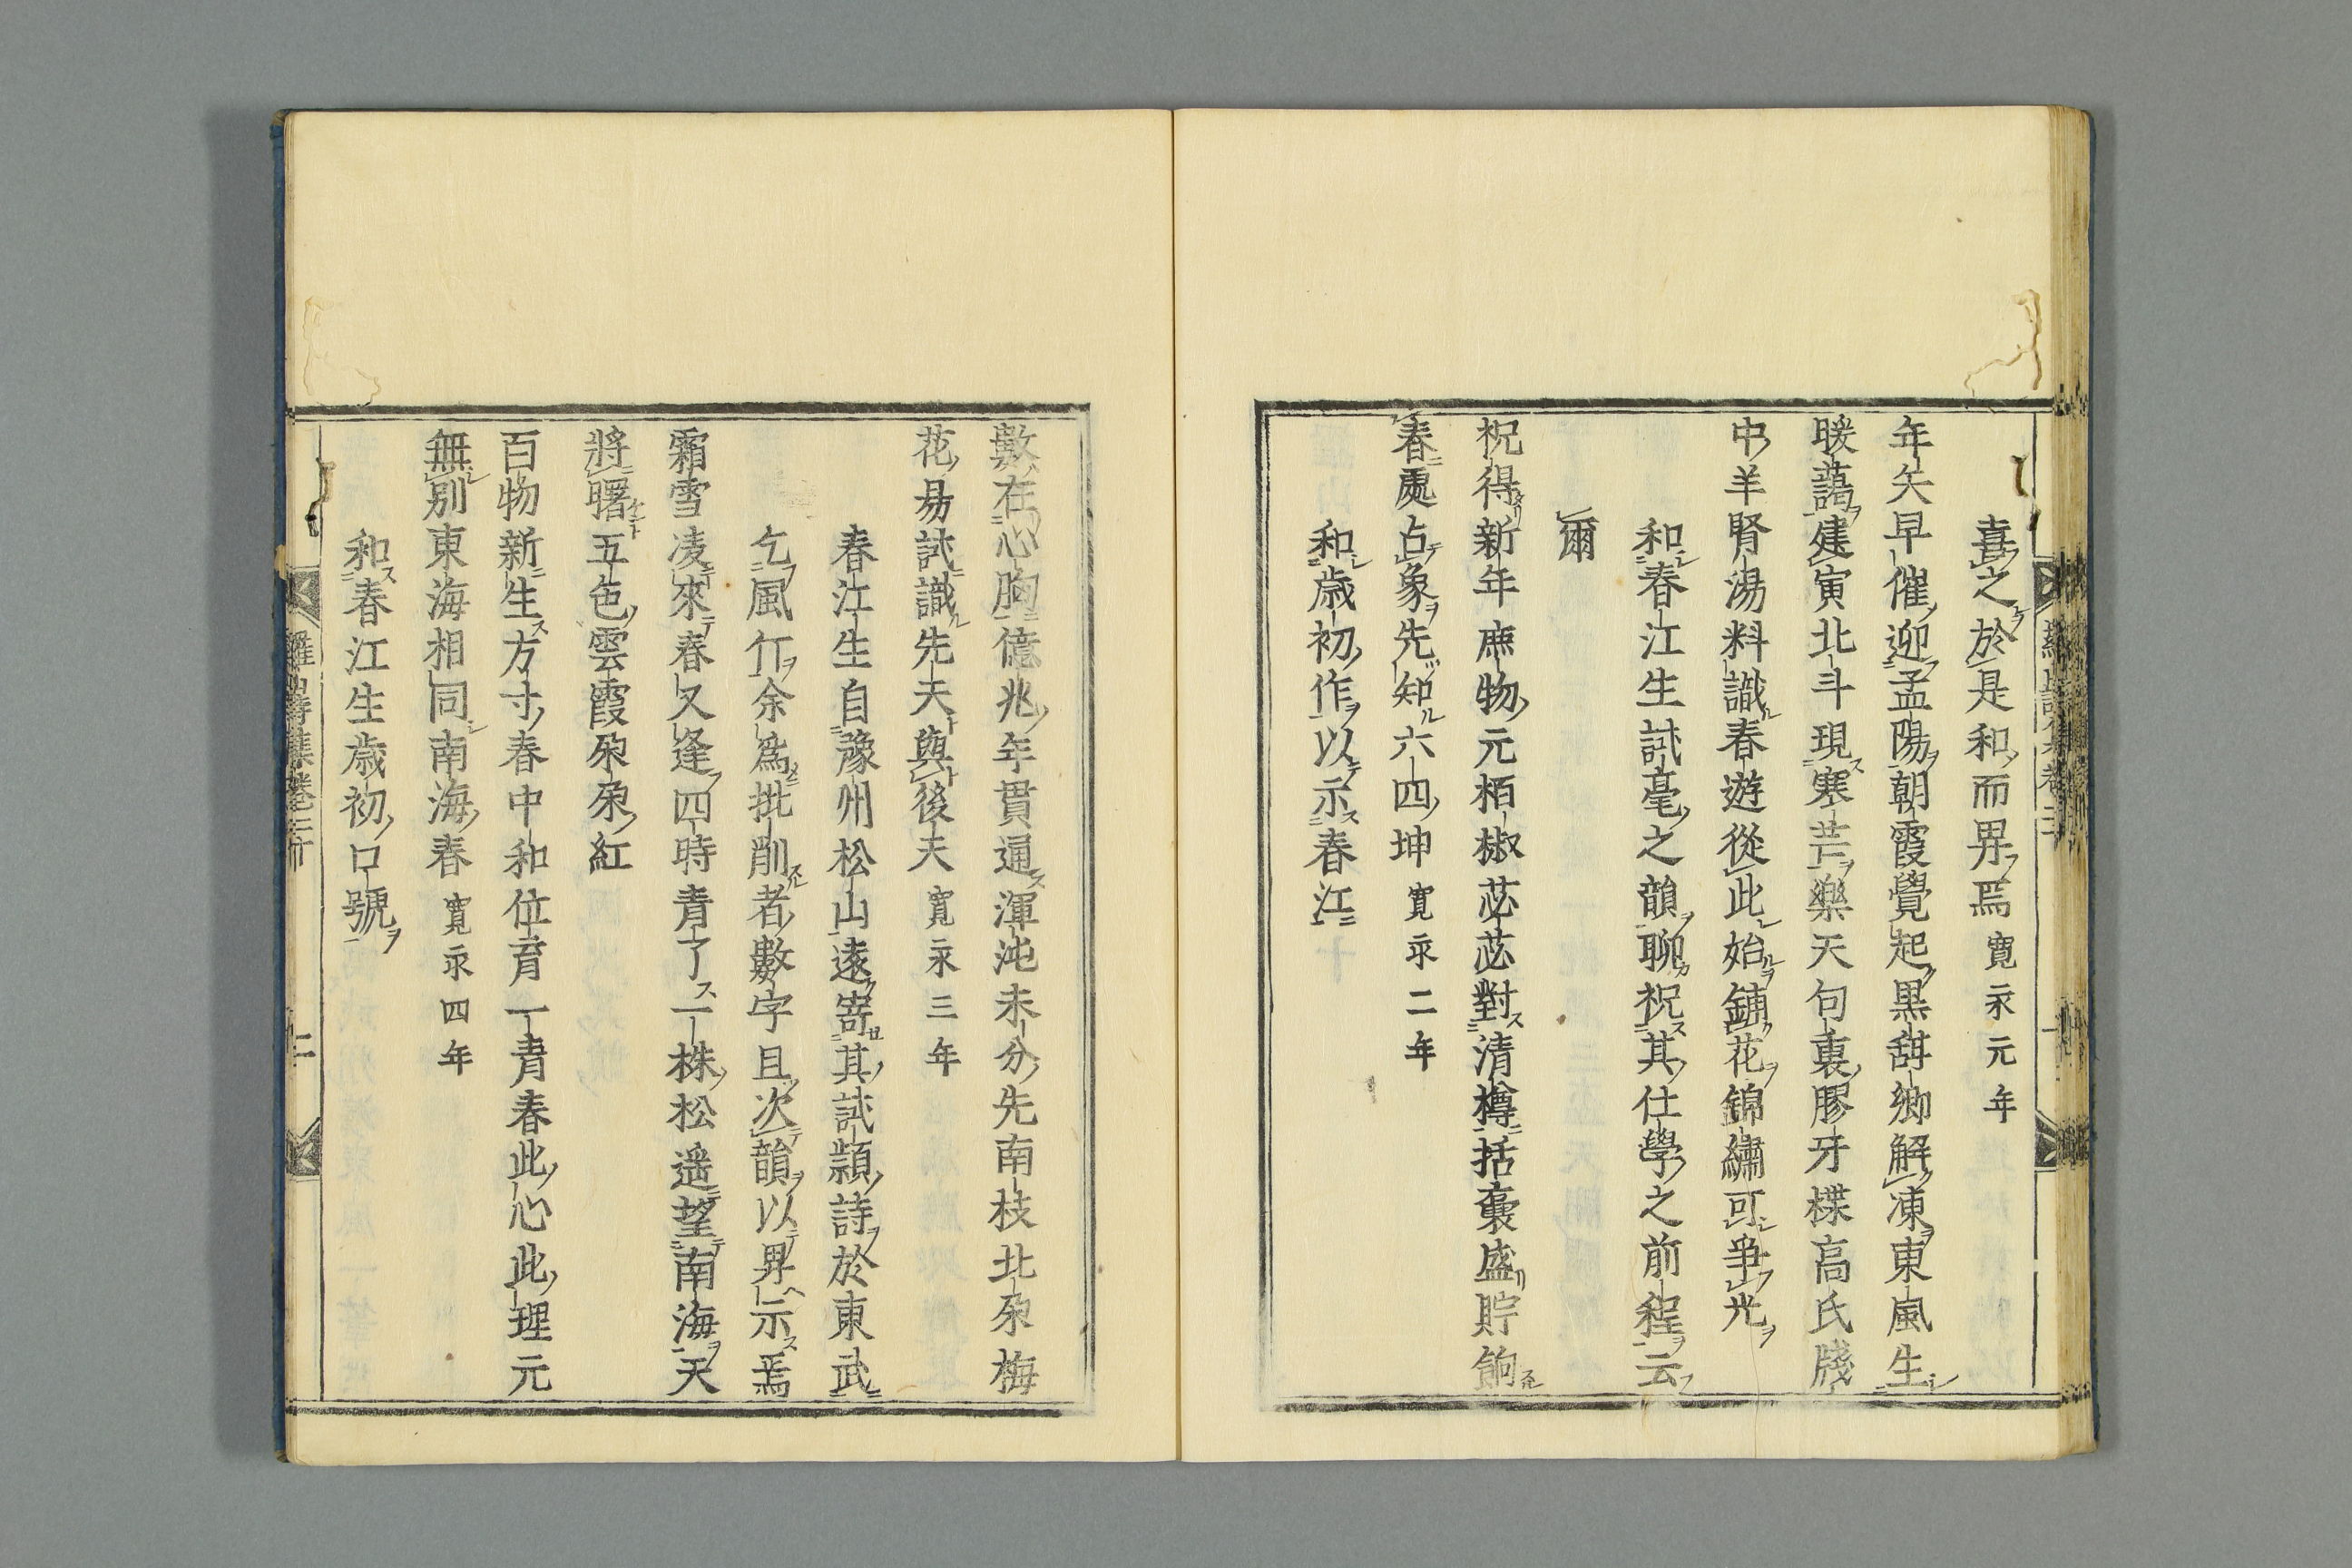 喜之於是和而畀焉 寛永元年
年矢早催迎孟陽朝霞覺起黒甜郷解凍東風生
暖藹建寅北斗現寒芒樂天句裏膠牙楪高氏牋
中羊腎湯料識春遊從此始鋪花錦繡可爭光
和春江生試毫之韻聊祝其仕學之前程云
爾
祝得新年庶物元栢椒苾苾對清樽括囊盛貯餉
春處占象先知六四坤 寛永二年
和歳初作以示春江
數在心胸億兆年貫通渾沌未分先南枝北朶梅
花易試識先天與後天 寛永三年
春江生自豫州松山遠寄其試頴詩於東武
乞風斤余爲批削者數字且次韻以畀示焉
霜雪凌來春又逢四時青了一株松遥望南海天
將曙五色雲霞朶朶紅
百物新生方寸春中和位育一青春此心此理元
無別東海相同南海春 寛永四年
和春江生歳初口號